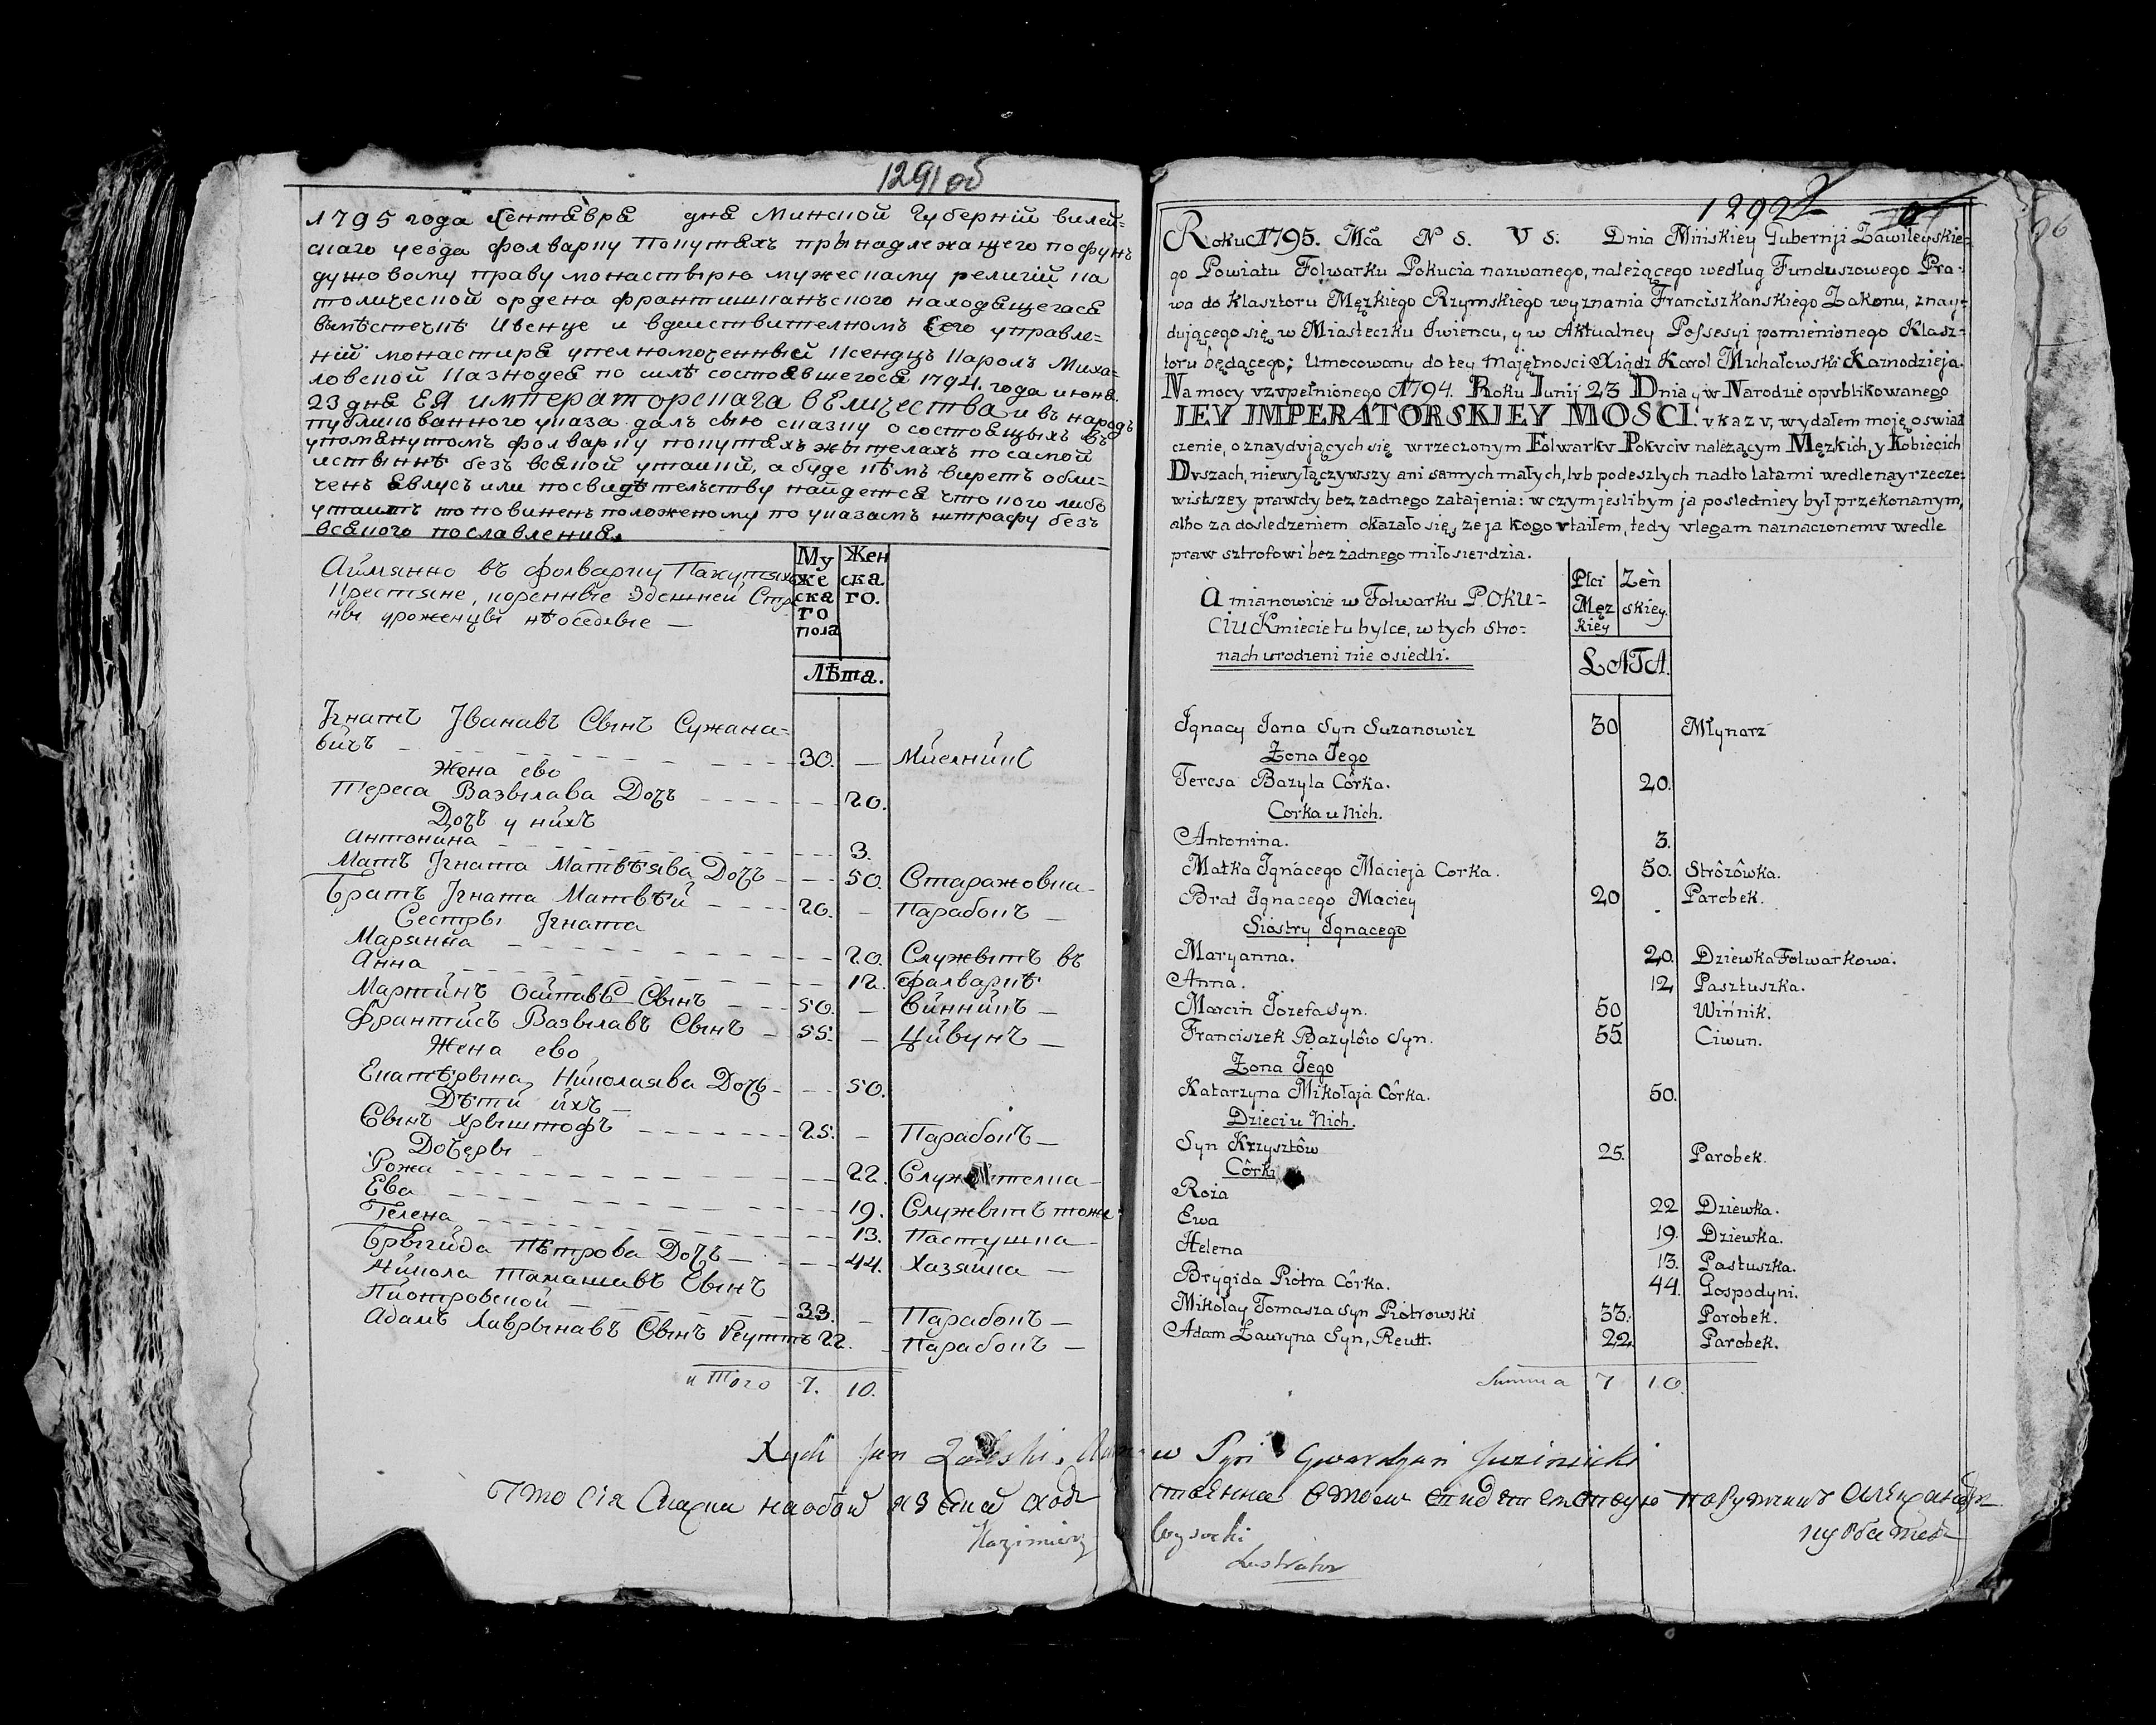 1291 об
1795 года Сентебра дна Минской Губерній вилей-
скаго уезда фолварку Покутяхъ прынадлежащего пофун
душовому праву монастырю мужескаму религій ка
толической ордена францишканъского находящегася
вмѣстечкѣ Ивенце и вдеиствителномъ Его управле-
ній монастира уполномоченный Ксендцъ Кароль Миха-
ловской Казнодея по силѣ состоявшегося 1794. года июня.
23 дня ЕЯ императорскага вЕличества и въ народъ
публикованного указа далъ сию сказку о состоящыхъ въ
упомянутомъ фолварку покутяхъ жытелахъ по самой
истыннѣ безъ всякой утайки, а буде кѣмъ виретъ обли-
ченъ явлусъ или посвидѣтельству найдется что кого либо
утаилъ то повиненъ положеному по указамъ штрафу безъ
всякого пославления.
Аймянно въ фолварку Пакутяхъ
Крестяне, коренные Здешней Стра
ны урожeнцы нѣоседлые —
Му
же
ска
го
пола
Жен
ска
го.
Лѣта.
Ігнатъ Іванавъ Сынъ Сужана-
вичъ 30. — Мйелникъ
Жена ево
Тереса Вазылава Дочь 20.
Дочь у нихъ
Антонина 3.
Мать Ігната Матвѣява Дочь 50. Старажовка
Братъ Ігната Матвѣй 20. — Парабокъ —
Сестры Ігната
Марянна 20. Служытъ въ
Анна 12. Фалваркѣ
Мартинъ Осипавъ Сынъ 50. — Винникъ —
Францисъ Вазылавъ Сынъ 55. — Цивунъ —
Жена ево
Екатѣрына Николаява Дочь 50.
Дѣти ихъ —
Сынъ Хрыштофъ 25. — Парабокъ —
Дочеры —
Рожа 22. Служителка
Ева 19. Служытъ тоже
Гелена 13. Пастушка
Брыгида Пѣтрова Дочь 44. Хазяйка —
Никола Тамашавъ Сынъ
Пиотровской 33. — Парабокъ —
Адамъ Лаврынавъ Сынъ Реуттъ 22. — Парабокъ —
и Того 7. 10.
1292
96
Roku 1795. Mca N S. V S. Dnia Mińskiey Gubernji Zawileyskie-
go Powiatu Folwarku Pokucia nazwanego, należącego według Funduszowego Pra-
wa do Klasztoru Męzkiego Rzymskiego wyznania Franciszkanskiego Zakonu, znay-
dującego się w Miasteczku Iwiencu, y w Aktualney Possesyi pomienionego Klasz-
toru będącego; Umocowany do tey Majętnosci Xiądz Karol Michałowski Kaznodzieja.
Na mocy vzvpełnionego 1794. Roku Junij 23 Dnia y w Narodzie opvblikowanego
IEY IMPERATORSKIEY MOSCI. vkazv, wydałem moję oswiad
czenie, o znaydvjących się w rzeczonym Folwarkv Pokvciv należącym Męzkich, y Kobiecich
Dvszach, niewyłączywszy ani samych małych, lvb podeszłych nadto latami wedle nayrzecze-
wistszey prawdy bez żadnego zatajenia: w czym jeslibym ja posledniey był przekonanym,
albo za dosledzeniem okazało się, że ja kogo vtaiłem, tedy vlegam naznaczonemv wedle
praw sztrofowi bez żadnego miłosierdzia.
A mianowicie w Folwarku POKU-
CIU Kmiecie tu bylce, w tych stro-
nach urodzeni nie osiedli.
Płci
Męz
kiey
Żeń
skiey.
LATA.
Ignacy Jana Syn Suzanowicz 30 Młynarz
Żona Jego
Teresa Bazyla Córka. 20.
Corka u Nich.
Antonina. 3.
Matka Ignacego Macieja Corka. 50. Stróżówka.
Brat Ignacego Maciey 20 Parobek.
Siostry Ignacego
Maryanna. 20. Dziewka Folwarkowa.
Anna. 12. Pasztuszka.
Marcin Jozefa Syn. 50 Winnik.
Franciszek Bazylów Syn. 55. Ciwun.
Żona Jego
Katarzyna Mikołaja Córka. 50.
Dzieci u Nich.
Syn Krzysztów 25. Parobek.
Córki
Roża 22 Dziewka.
Ewa 19. Dziewka.
Helena 13. Pastuszka.
Brygida Piotra Córka. 44. Gospodyni.
Mikołay Tomasza Syn Piotrowski 33. Parobek.
Adam Ławryna Syn, Reutt. 22. Parobek.
Summa 7 10.
Xądz Jan Zaleski Gwardyan Iwiniecki
Что сія Скаска
Kazimierz Wysocki
Lustrator